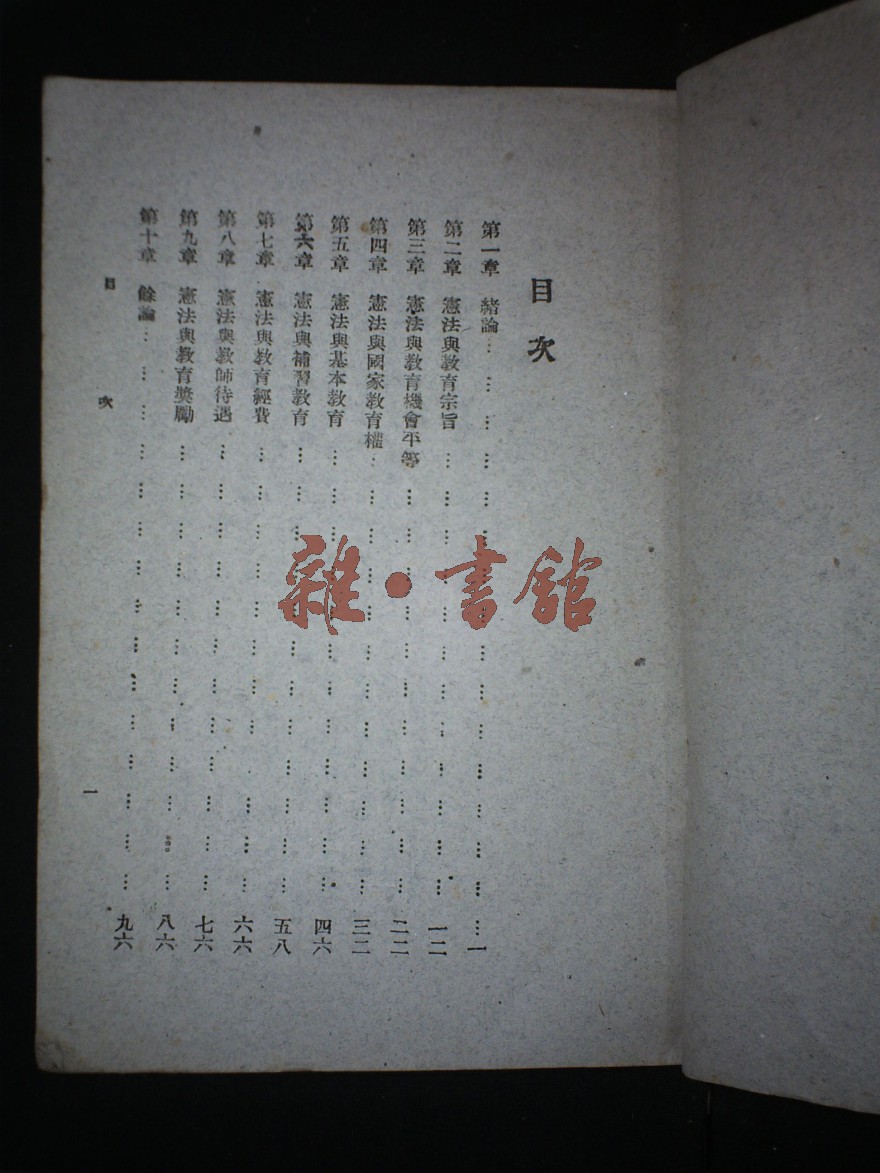 目次
第一章 緒論………………………………………一
第二章 憲法與教育宗旨………………………………………一二
第三章 憲法與教育機會平等………………………………………二二
第四章 憲法與國家教育權………………………………………三二
第五章 憲法與基本教育………………………………………四六
第六章 憲法與補習教育………………………………………五八
第七章 憲法與教育經費………………………………………六六
第八章 憲法與教師待遇………………………………………七六
第九章 憲法與教育獎勵………………………………………八六
第十章 餘論………………………………………九六
目次 一
雜·書館